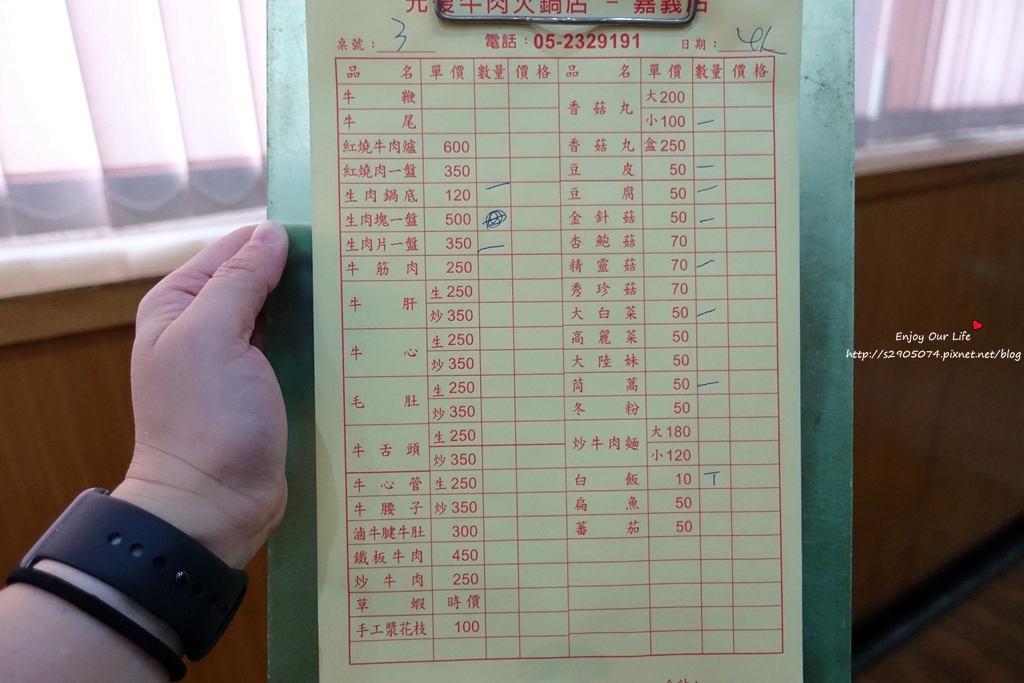 元復牛肉火鍋店 - 嘉義店
桌號: 3 電話:05-2329191 日期:
品名 單價 數量 價格 品名 單價 數量 價格
牛鞭 香菇丸 大200
牛尾 小100 一
紅燒牛肉爐 600 香菇丸 盒250
紅燒肉一盤 350 豆皮 50 一
生肉鍋底 120 一 豆腐 50 一
生肉塊一盤 500 金針菇 50 一
生肉片一盤 350 一 杏鮑菇 70
牛筋肉 250 精靈菇 70 一
牛肝 生250 秀珍菇 70
炒350 大白菜 50 一
牛心 生250 高麗菜 50
炒350 大陸妹 50
毛肚 生250 茼蒿 50 一
炒350 冬粉 50
牛舌頭 生250 炒牛肉麵 大180
炒350 小120
牛心管 生250 白飯 10 T
牛腰子 炒350 扁魚 50
滷牛腱牛肚 300 蕃茄 50
鐵板牛肉 450
炒牛肉 250
草蝦 時價
手工漿花枝 100
Enjoy Our Life
http://s2905074.pixnet.net/blog